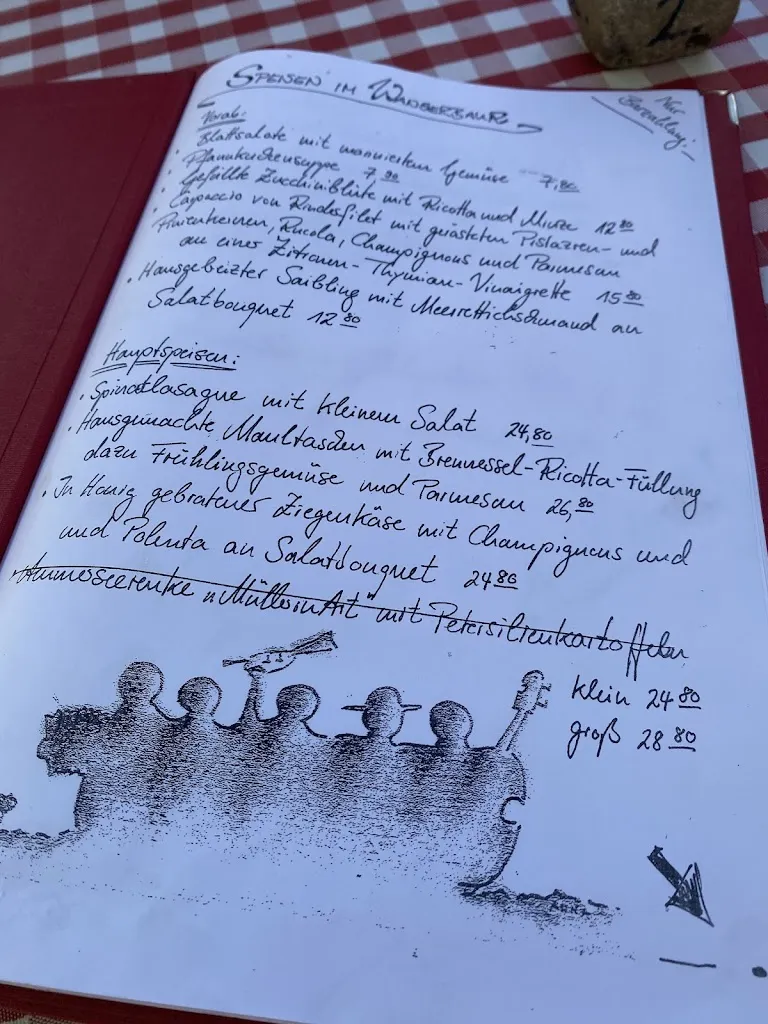 SPEISEN IM WANDERBAUR
Nur
Barzahlung!
Vorab:
· Blattsalate mit mariniertem Gemüse 7,80
· Pfannkuchensuppe 7,90
· Gefüllte Zucchiniblüte mit Ricotta und Minze 12 80
· Capaccio von Rindesfilet mit gerösteten Pistazien- und
Pinienkernen, Rucola, Champignons und Parmesan
an einer Zitronen-Thymian-Vinaigrette 15 80
· Hausgebeizter Saibling mit Meerrettichschmand an
Salatbouquet 12 80
Hauptspeisen:
· Spinatlasagne mit kleinem Salat 24,80
· Hausgemachte Maultaschen mit Brennessel-Ricotta-Füllung
dazu Frühlingsgemüse und Parmesan 26,80
· In Honig gebratener Ziegenkäse mit Champignons und
und Polenta an Salatbouquet 24 80
· Ammerseerenke "Müllerin Art" mit Petersilienkartoffeln
klein 24 80
groß 28 80
2.